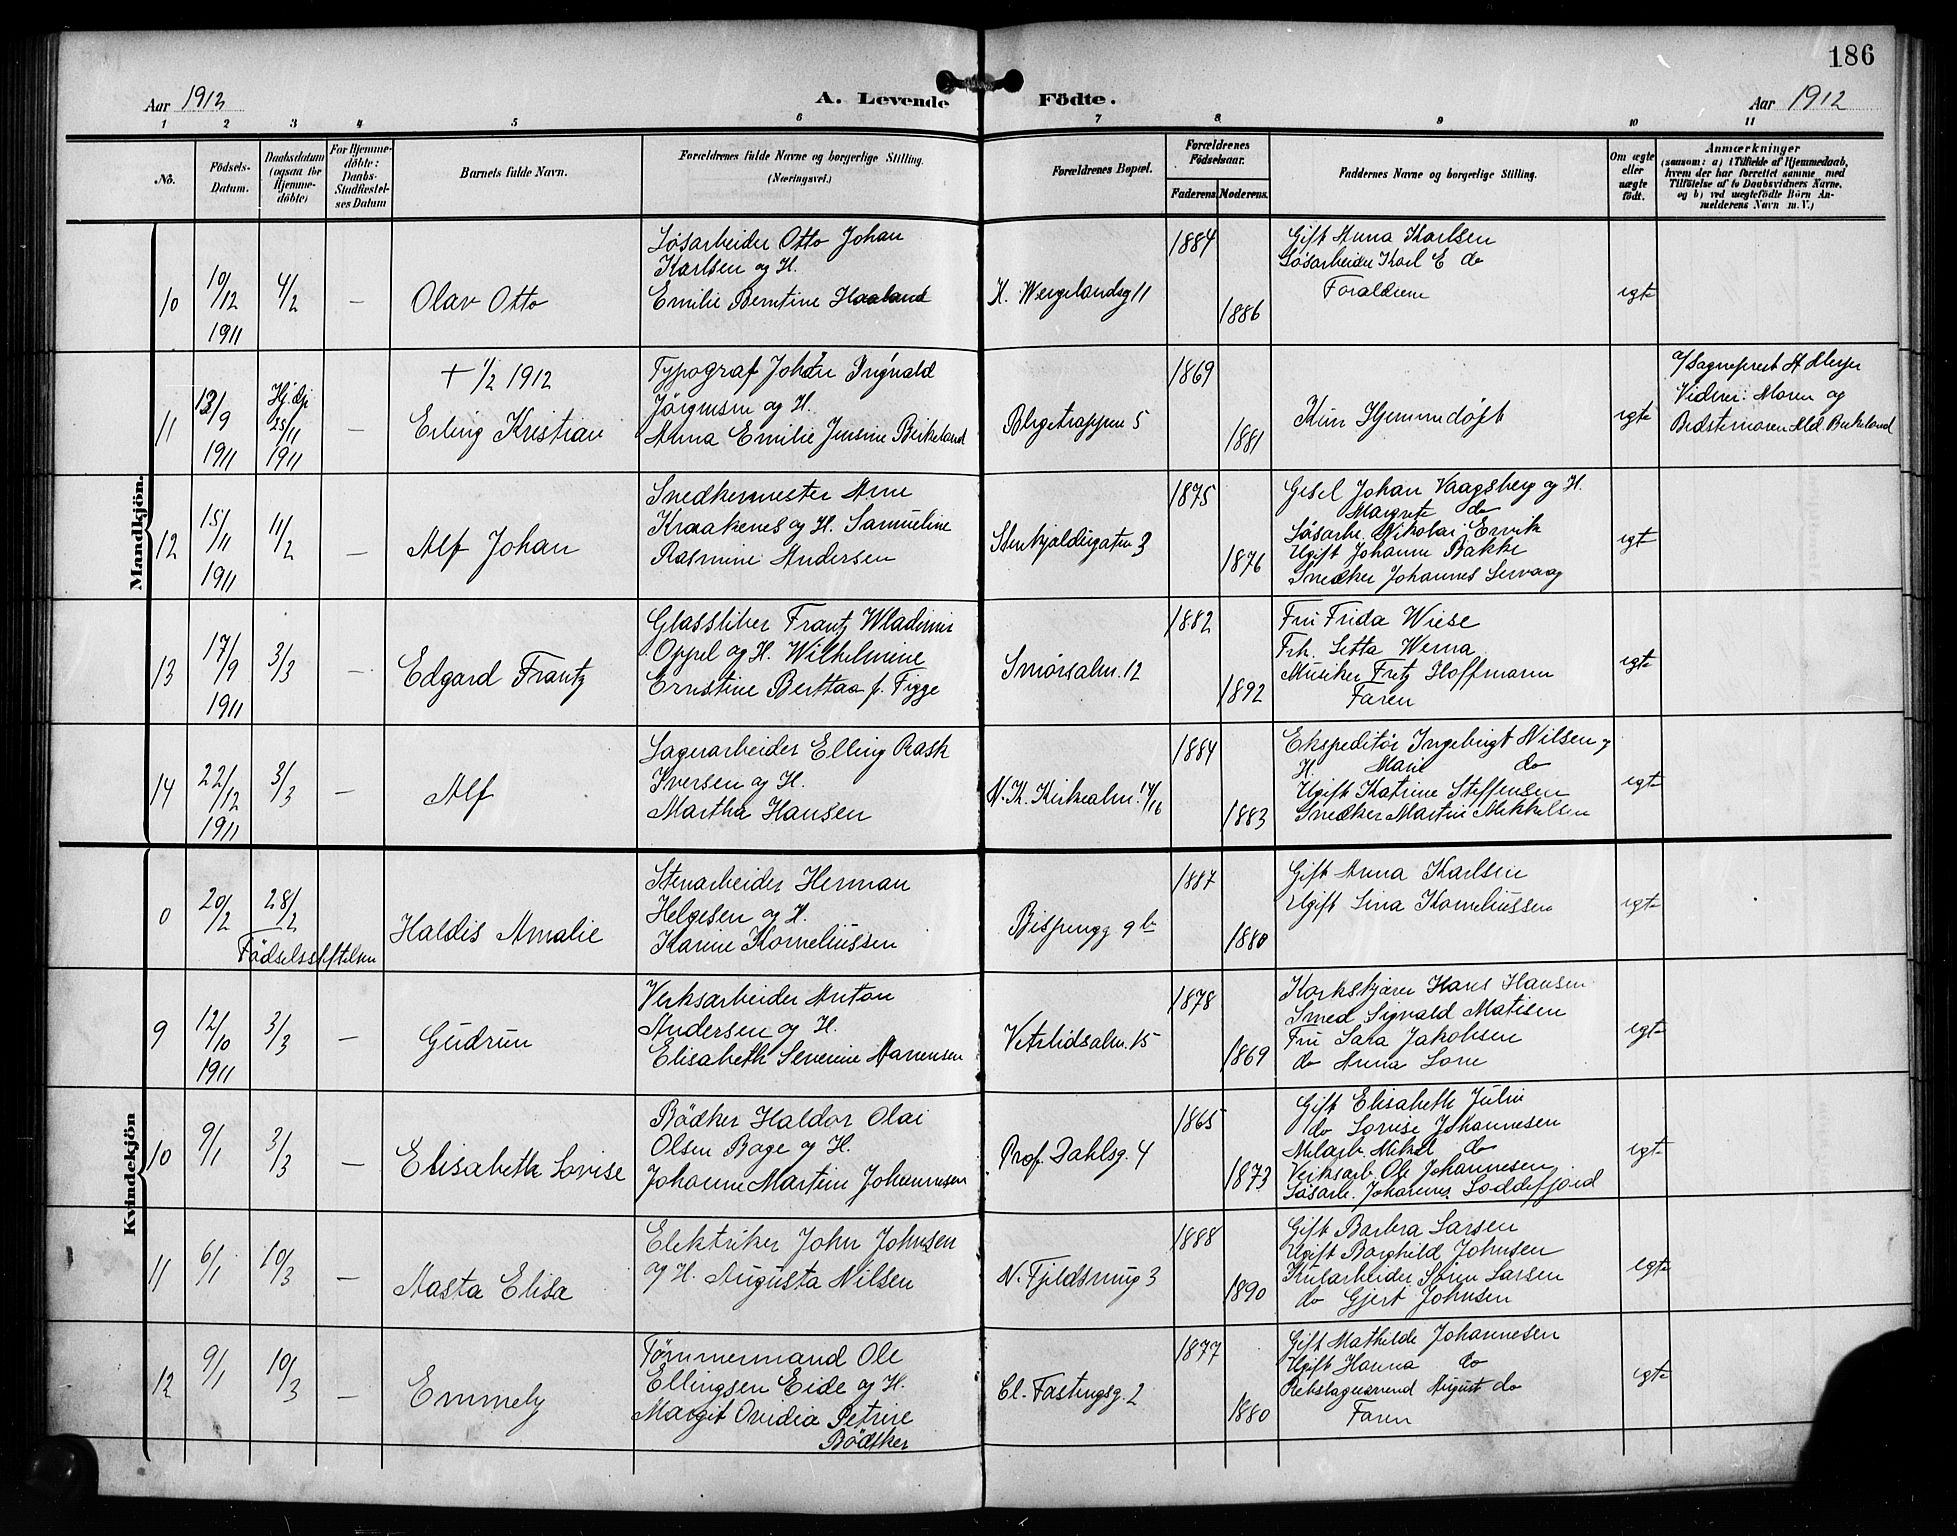 186
Aar 1912
A. Levende Födte.
Aar 1912
1 2 3 4 5 6 7 8 9 10 11
No.
Födsels-Datum.
Daabsdatum (ogsaa for Hjemme-döbte)
For Hjemme-döbte: Daabs-Stadfæstel-ses Datum
Barnets fulde Navn.
Forældrenes fulde Navne og borgerlige Stilling.
(Næringsvei.)
Forældrenes Bopæl.
Forældrenes Födselsaar.
Faderens. Moderens.
Faddernes Navne og borgerlige Stilling.
Om ægte eller uægte födt.
Anmærkninger
(saasom: a) i Tilfælde af Hjemmedaab,
hvem der har forrettet samme, med
Tilföielse af to Daabsvidners Navne,
og b) ved uægtefödte Börn An-
melderens Navn m. V.)
Mandkjön.
10
10/12 1911
4/2
—
Olav Otto
Løsarbeider Otto Johan
Karlsen og H.
Emilie Berntine Haaland
H. Wergelandsg 11
1884
1886
Gift Anna Karlsen
Løsarbeider Karl E do
Forældrene
egte
11
13/9 1911
Hj. dp 25/11 1911
—
+ 1/2 1912
Erling Kristian
Typograf Johan Ingvald
Jörgensen og H.
Anna Emilie Jensine Birkeland
Blegetrappen 5
1869
1881
Kun Hjemmedøpt
egte
af Sogneprest A Meyer
Vidner: Moren og
Bedstemoren Ald. Birkeland
12
15/11 1911
11/2
—
Alf Johan
Snedkermester Arne
Kraakenes og H. Samueline
Rasmine Andersen
Stenkjeldergaten 3
1875
1876
Gesel Johan Vaagsberg og H.
Margrete do
Løsarb. Nikolai Ervik
Ugift Johanne Bakke
Snedker Johannes Servaag
egte
13
17/9 1911
3/3
—
Edgard Frantz
Glassliber Frantz Wladimir
Oppel og H. Wilhelmine
Ernstine Berttaa f. Figge
Smörsalm. 12
1882
1892
Fru Frida Wiese
Frk. Setta Werna
Musiker Fritz Hoffmann
Faren
egte
14
22/12 1911
3/3
—
Alf
Lagerarbeider Elling Rask
Iversen og H.
Martha Hansen
N. K. Kirkealm. 14/16
1884
1883
Ekspeditör Ingebrigt Nilsen og
H. Marie do
Ugift Katrine Steffensen
Snedker Martin Mikkelsen
egte
Kvindekjön
0
20/2
28/2
Fødselsstiftelsen
Haldis Amalie
Stenarbeider Herman
Helgesen og H.
Karine Korneliussen
Bispengg 9 b
1887
1880
Gift Anna Karlsen
Ugift Lina Korneliussen
egte
9
12/10 1911
3/3
—
Gudrun
Verksarbeider Anton
Andersen og H.
Elisabeth Severine Marensen
Vetrlidsalm. 15
1878
1869
Korkskjærer Hans Hansen
Smed Sigvald Matisen
Fru Sara Jakobsen
do Anna Lone
egte
10
9/1
3/3
—
Elisabeth Lovise
Bödker Haldor Olai
Olsen Bage og H.
Johanne Martine Johannesen
Prof. Dahlsg. 4
1865
1873
Gift Elisabeth Julin
do Lovise Johannesen
Milarb. Mikal do
Verksarb. Ole Johannesen
Løsarb. Johannes Loddefjord
egte
11
6/1
10/3
—
Aasta Elisa
Elektriker John Johnsen
og H. Augusta Nilsen
N. Fjeldsmug 3
1888
1890
Gift Barbra Larsen
Ugift Borghild Johnsen
Kularbeider Sören Larsen
do Gjert Johnsen
egte
12
9/1
10/3
—
Emmely
Tømmermand Ole
Ellingsen Eide og H.
Margit Ovidia Petrine
Bödtker
Cl. Fastingsg. 2
1877
1880
Gift Mathilde Johannesen
Ugift Hanna do
Rebslagersvend August do
Faren
egte